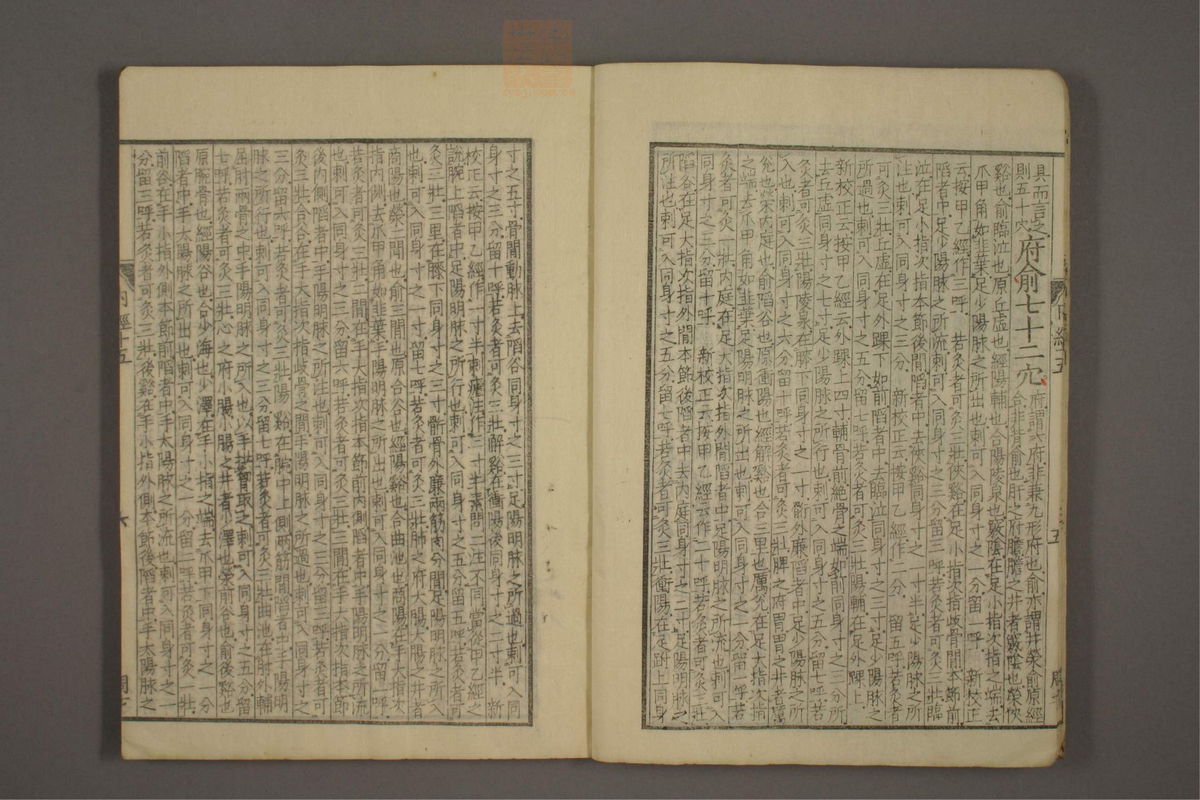 具而言之
則五十穴
府俞七十二穴
府謂六府非兼九形府也俞亦謂井榮俞原經
合非背俞也肝之府膽膽之井者竅陰也榮俠
谿也俞臨泣也原丘虛也經陽輔也合陽陵泉也竅陰在足小指次指之端去
爪甲角如韮葉足少陽脉之所出也刺可入同身寸之一分留一呼 新校正
云按甲乙經作三呼 若灸者可灸三壯俠谿在足小指次指歧骨間本節前
陷者中足少陽脉之所流刺可入同身寸之三分留三呼若灸者可灸三壯臨
泣在足小指次指本節後間陷者中去俠谿同身寸之一寸半足少陽脉之所
注也刺可入同身寸之三分 新校正云按甲乙經作二分 留五呼若灸者
可灸三壯丘虛在足外踝下如前陷者中去臨泣同身寸之三寸足少陽脉之
所過也刺可入同身寸之五分留七呼若灸者可灸三壯陽輔在足外踝上
新校正云按甲乙經云外踝上四寸輔骨前絕骨之端如前同身寸之三分所
去丘虛同身寸之七寸足少陽脉之所行也刺可入同身寸之五分留七呼若
灸者可灸三壯陽陵泉在膝下同身寸之一寸䯒外廉陷者中足少陽脉之所
入也刺可入同身寸之六分留十呼若灸者可灸三壯脾之府胃胃之井者厲
兊也榮內庭也俞陷谷也原衝陽也經解谿也合三里也厲兊在足大指次指
之端去爪甲角如韮葉足陽明脉之所出也刺可入同身寸之一分留一呼若
灸者可灸一壯內庭在足大指次指外間陷者中足陽明脉之所流也刺可入
同身寸之三分留十呼 新校正云按甲乙經云作二十呼若灸者可灸三壯
陷谷在足大指次指外間本節後陷者中去內庭同身寸之二寸足陽明脉之
所注也刺可入同身寸之五分留七呼若灸者可灸三壯衝陽在足跗上同身
寸之五寸骨間動脉上去陷谷同身寸之三寸足陽明脉之所過也刺可入同
身寸之三分留十呼若灸者可灸三壯解谿在衝陽後同身寸之二寸半 新
校正云按甲乙經作一寸半刺瘧注作三寸半素問二注不同當從甲乙經之
說腕上陷者中足陽明脉之所行也刺可入同身寸之五分留五呼若灸者可
灸三壯三里在膝下同身寸之三寸䯒骨外廉兩筋肉分間足陽明脉之所入
也刺可入同身寸之一寸留七呼若灸者可灸三壯肺之府大腸大腸之井者
商陽也榮二間也俞三間也原合谷也經陽谿也合曲池也商陽在手大指次
指內側去爪甲角如韮葉手陽明脉之所出也刺可入同身寸之一分留一呼
若灸者可灸三壯二間在手大指次指本節前內側陷者中手陽明脉之所流
也刺可入同身寸之三分留六呼若灸者可灸三壯三間在手大指次指本節
後內側陷者中手陽明脉之所注也刺可入同身寸之三分留三呼若灸者可
灸三壯合谷在手大指次指歧骨之間手陽明脉之所過也刺可入同身寸之
三分留六呼若灸者可灸三壯陽谿在腕中上側兩筋間陷者中手陽明
脉之所行也刺可入同身寸之三分留七呼若灸者可灸三壯曲池在肘外輔
屈肘兩骨之中手陽明脉之所入也以手拱胷取之刺可入同身寸之五分留
七呼若灸者可灸三壯心之府小腸小腸之井者少澤也榮前谷也俞後谿也
原腕骨也經陽谷也合少海也少澤在手小指之端去爪甲下同身寸之一分
陷者中手太陽脉之所出也刺可入同身寸之一分留二呼若灸者可灸一壯
前谷在手小指外側本節前陷者中手太陽脉之所流也刺可入同身寸之一
分留三呼若灸者可灸三壯後谿在手小指外側本節後陷者中手太陽脉之
內經十五